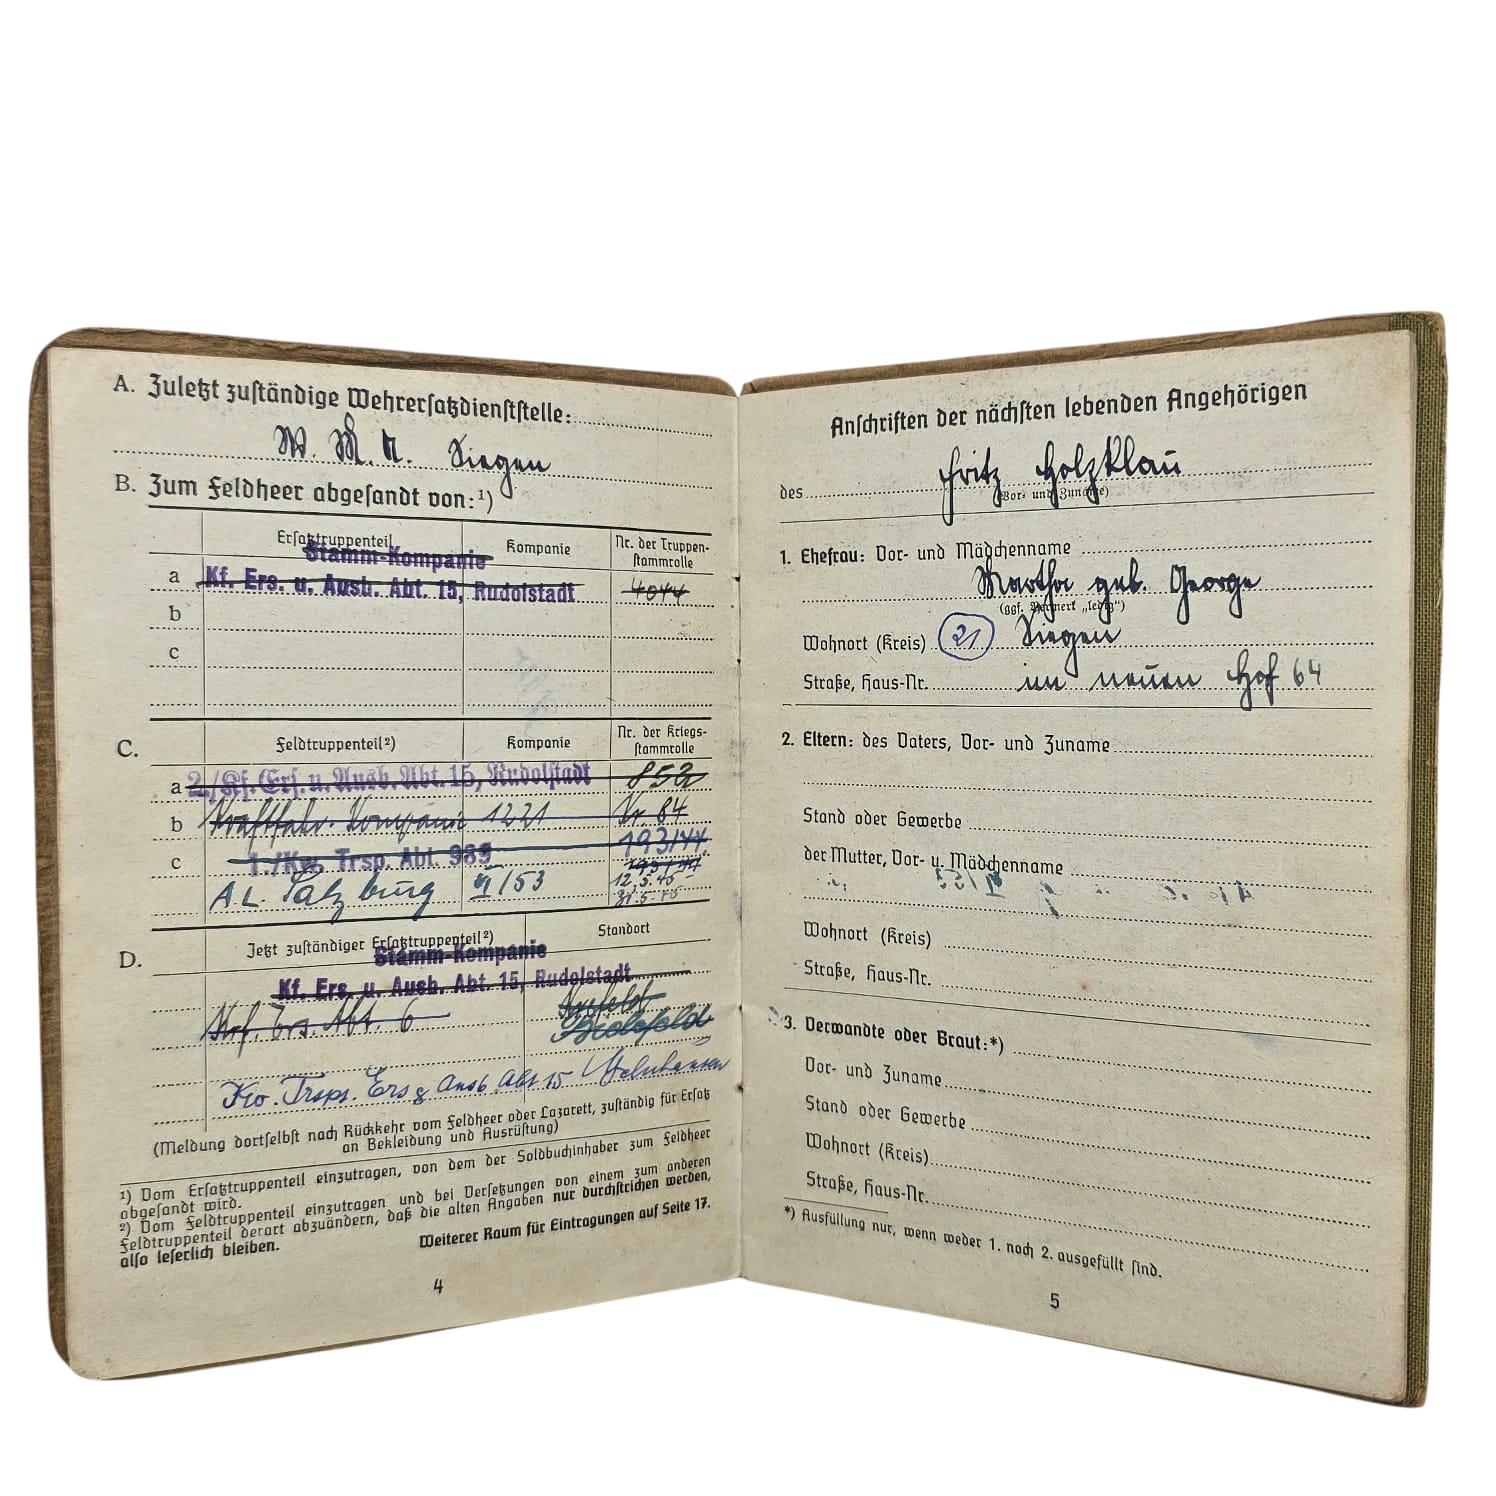 A. Zuletzt zuständige Wehrersatzdienststelle:
W. M. A. Siegen
B. Zum Feldheer abgesandt von:¹)
Ersatztruppenteil Kompanie Nr. der Truppen-
stammrolle
Stamm-Kompanie
a Kf. Ers. u. Ausb. Abt. 15, Rudolstadt 4044
b
c
C. Feldtruppenteil²) Kompanie Nr. der Kriegs-
stammrolle
a 2./Kf. Ers. u. Ausb. Abt. 15, Rudolstadt 852
b Kraftfahr. Kompanie 1221 Nr. 84
c 1./Kw. Trsp. Abt. 989 193/44
A.L. Salzburg II/53 12.5.45
31.5.45
D. Jetzt zuständiger Ersatztruppenteil²) Standort
Stamm-Kompanie
Kf. Ers. u. Ausb. Abt. 15, Rudolstadt
Krf. Ers. Abt. 6 Bielefeld
Kw. Trsp. Ers. & Ausb. Abt 15 Gelnhausen
(Meldung dortselbst nach Rückkehr vom Feldheer oder Lazarett, zuständig für Ersatz
an Bekleidung und Ausrüstung)
¹) Vom Ersatztruppenteil einzutragen, von dem der Soldbuchinhaber zum Feldheer
abgesandt wird.
²) Vom Feldtruppenteil einzutragen und bei Versetzungen von einem zum anderen
Feldtruppenteil derart abzuändern, daß die alten Angaben nur durchstrichen werden,
also leserlich bleiben.
Weiterer Raum für Eintragungen auf Seite 17.
4
Anschriften der nächsten lebenden Angehörigen
des Fritz Holzklau
(Vor- und Zuname)
1. Ehefrau: Vor- und Mädchenname
Martha geb. George
(ggf. Vermerk „ledig“)
Wohnort (Kreis) 21 Siegen
Straße, Haus-Nr. im neuen Hof 64
2. Eltern: des Vaters, Vor- und Zuname
Stand oder Gewerbe
der Mutter, Vor- u. Mädchenname
Wohnort (Kreis)
Straße, Haus-Nr.
3. Verwandte oder Braut:*)
Vor- und Zuname
Stand oder Gewerbe
Wohnort (Kreis)
Straße, Haus-Nr.
*) Ausfüllung nur, wenn weder 1. noch 2. ausgefüllt sind.
5